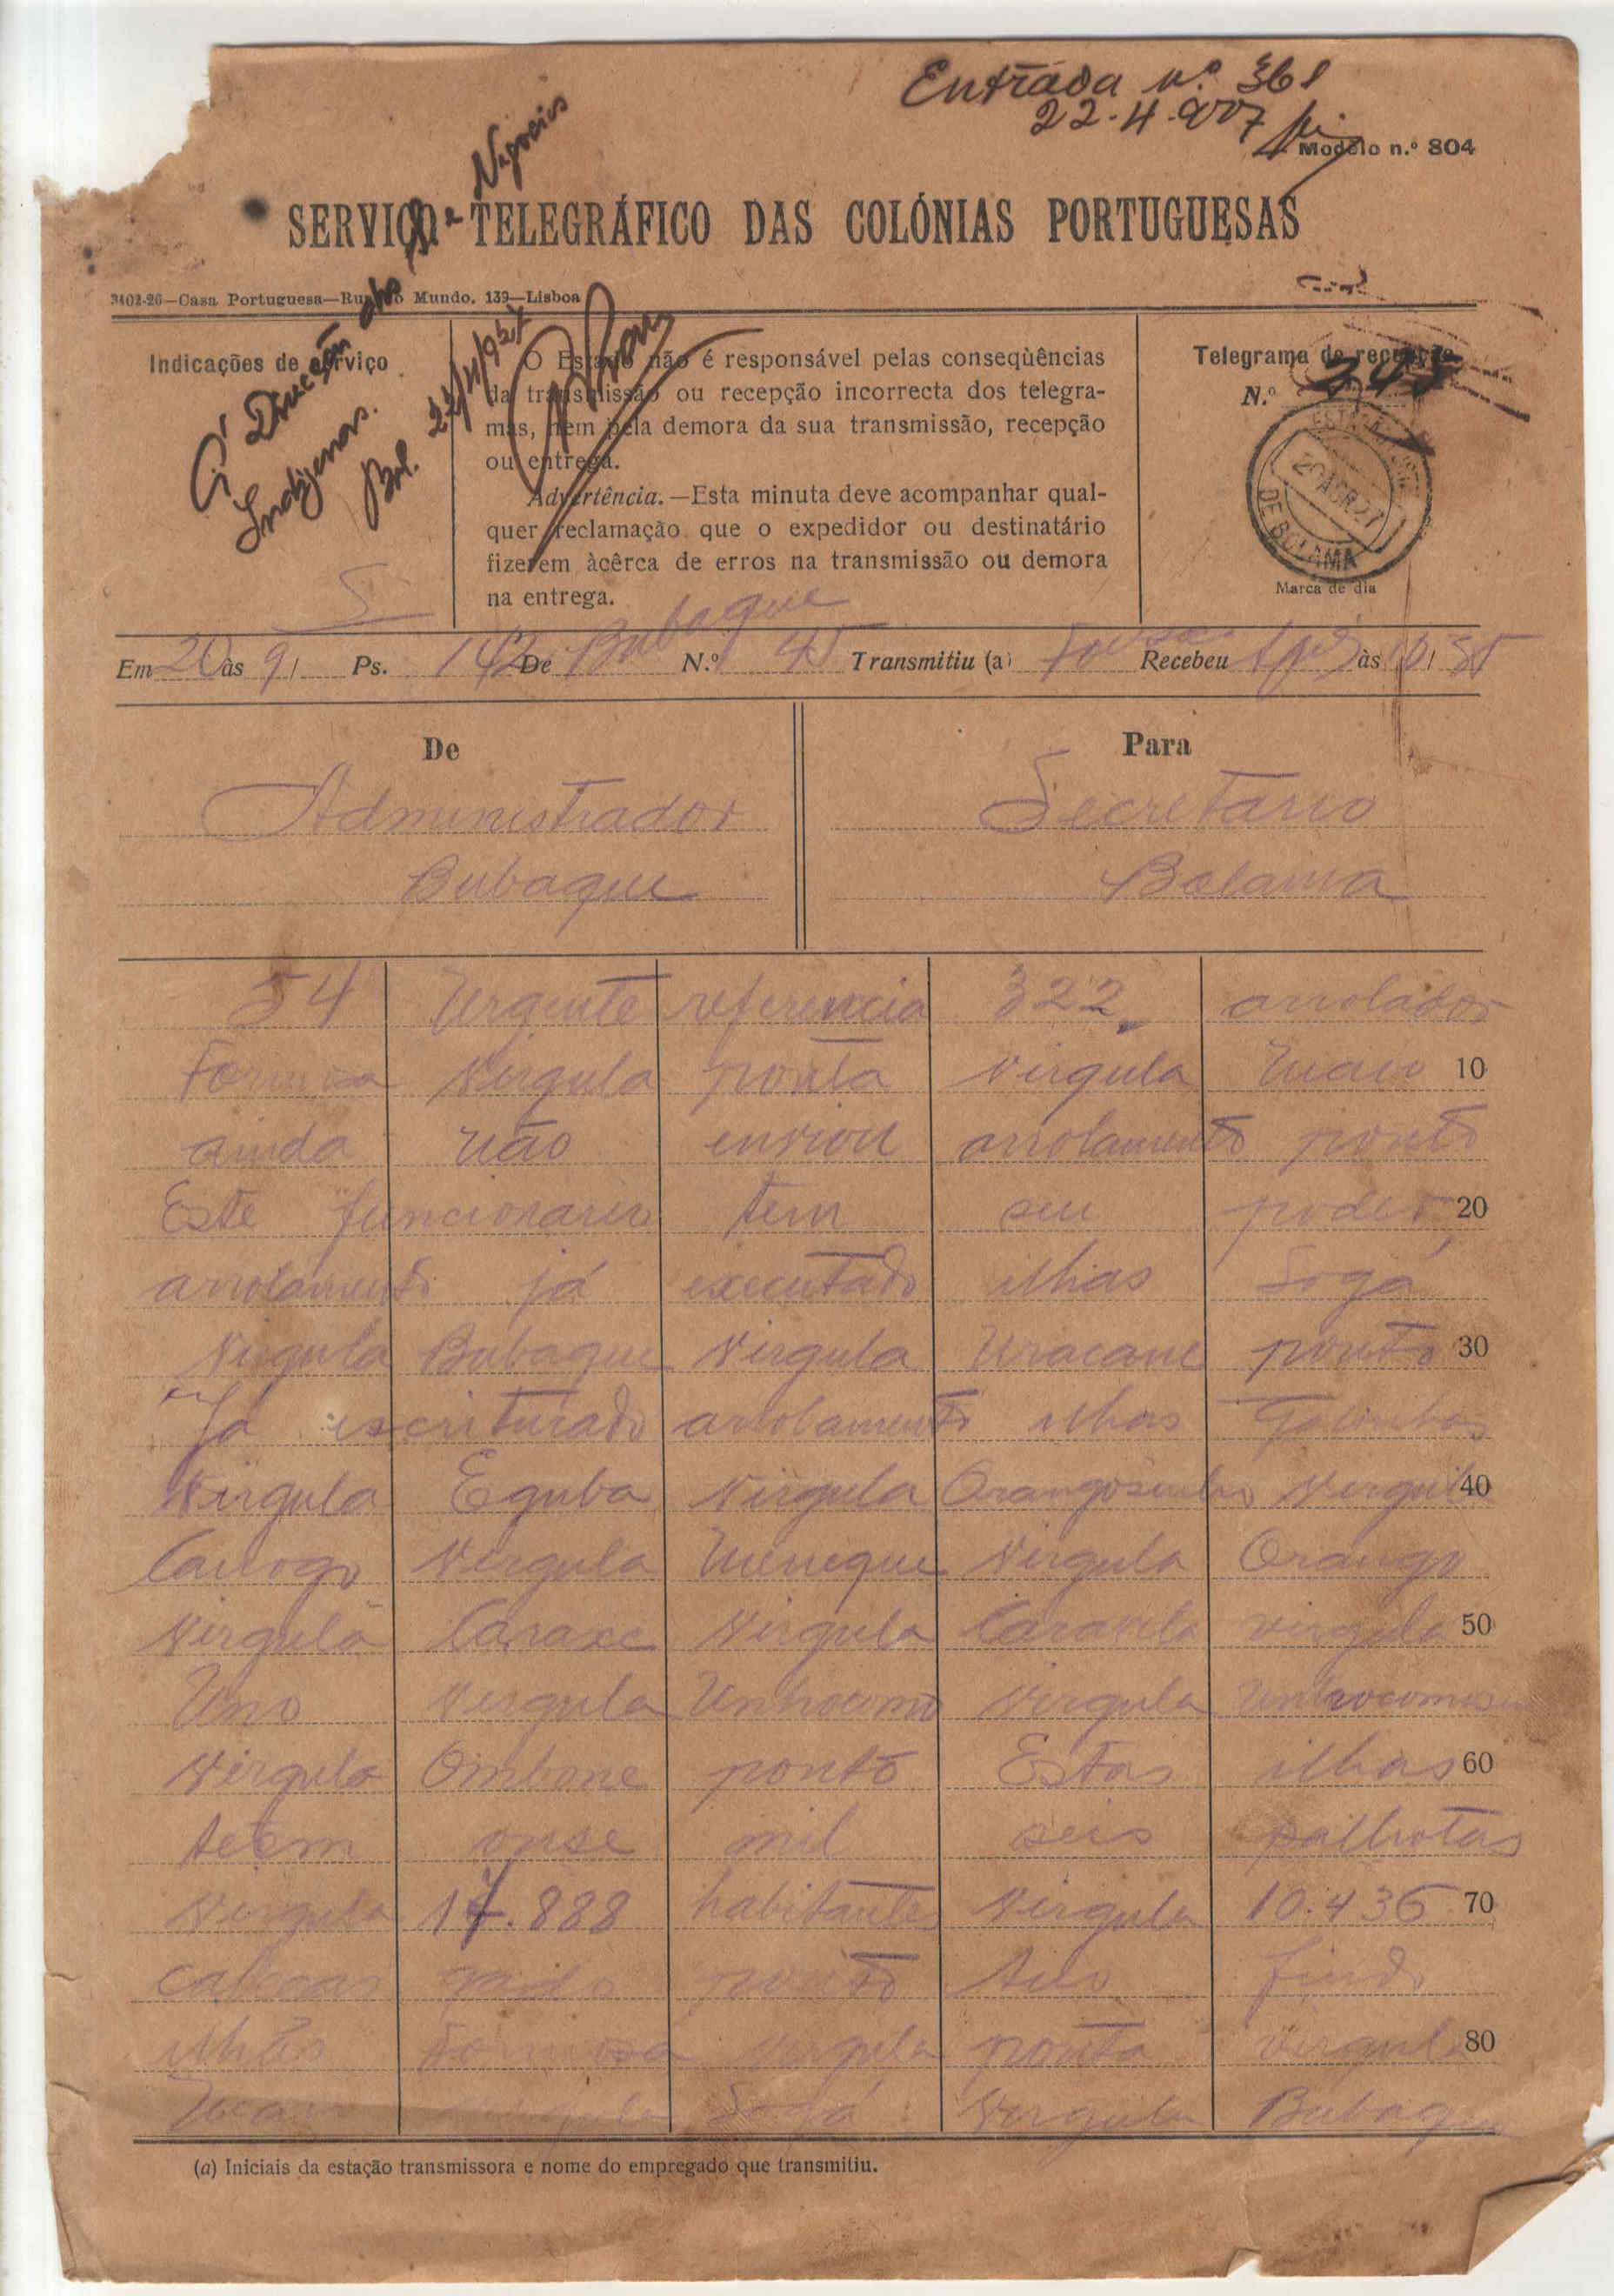 Entrada n.º 361
22-4-927
Modelo n.º 804
SERVIÇO TELEGRÁFICO DAS COLÓNIAS PORTUGUESAS
3402-26—Casa Portuguesa—Rua do Mundo, 139—Lisboa
Á Direcção dos N. Negocios
Indigenas.
Bol. 22/4/927
Indicações de serviço
O Estado não é responsável pelas conseqüências
da transmissão ou recepção incorrecta dos telegra-
mas, nem pela demora da sua transmissão, recepção
ou entrega.
Advertência.—Esta minuta deve acompanhar qual-
quer reclamação que o expedidor ou destinatário
fizerem àcêrca de erros na transmissão ou demora
na entrega.
Telegrama de recepção
N.º 345
DE BOLAMA
Marca de dia
Em 20 às 9/ Ps. 142 De Bubaque N.º 45 Transmitiu (a) Recebeu às 10/35
De
Para
Administrador
Secretario
Bubaque
Bolama
54 Urgente referencia 322 arrolador
Formosa virgula ponta virgula Maio 10
ainda não enviou arrolamento ponto
Este funcionario tem seu poder 20
arrolamento já executado ilhas Sogá
virgula Bubaque virgula Uracane ponto 30
Já escriturado arrolamento ilhas Galinhas
virgula Eguba virgula Orangosinho virgula 40
Canogo virgula Meneque virgula Orango
virgula Caraxe virgula Caravela virgula 50
Uno virgula Unhocomo virgula Unhocomosinho
virgula Ombone ponto Estas ilhas 60
teem onse mil seis palhotas
virgula 17.888 habitantes virgula 10.436 70
cabeças gado ponto Ano findo
ilhas Formosa virgula ponta virgula 80
Maio virgula Sogá virgula Bubaque
(a) Iniciais da estação transmissora e nome do empregado que transmitiu.